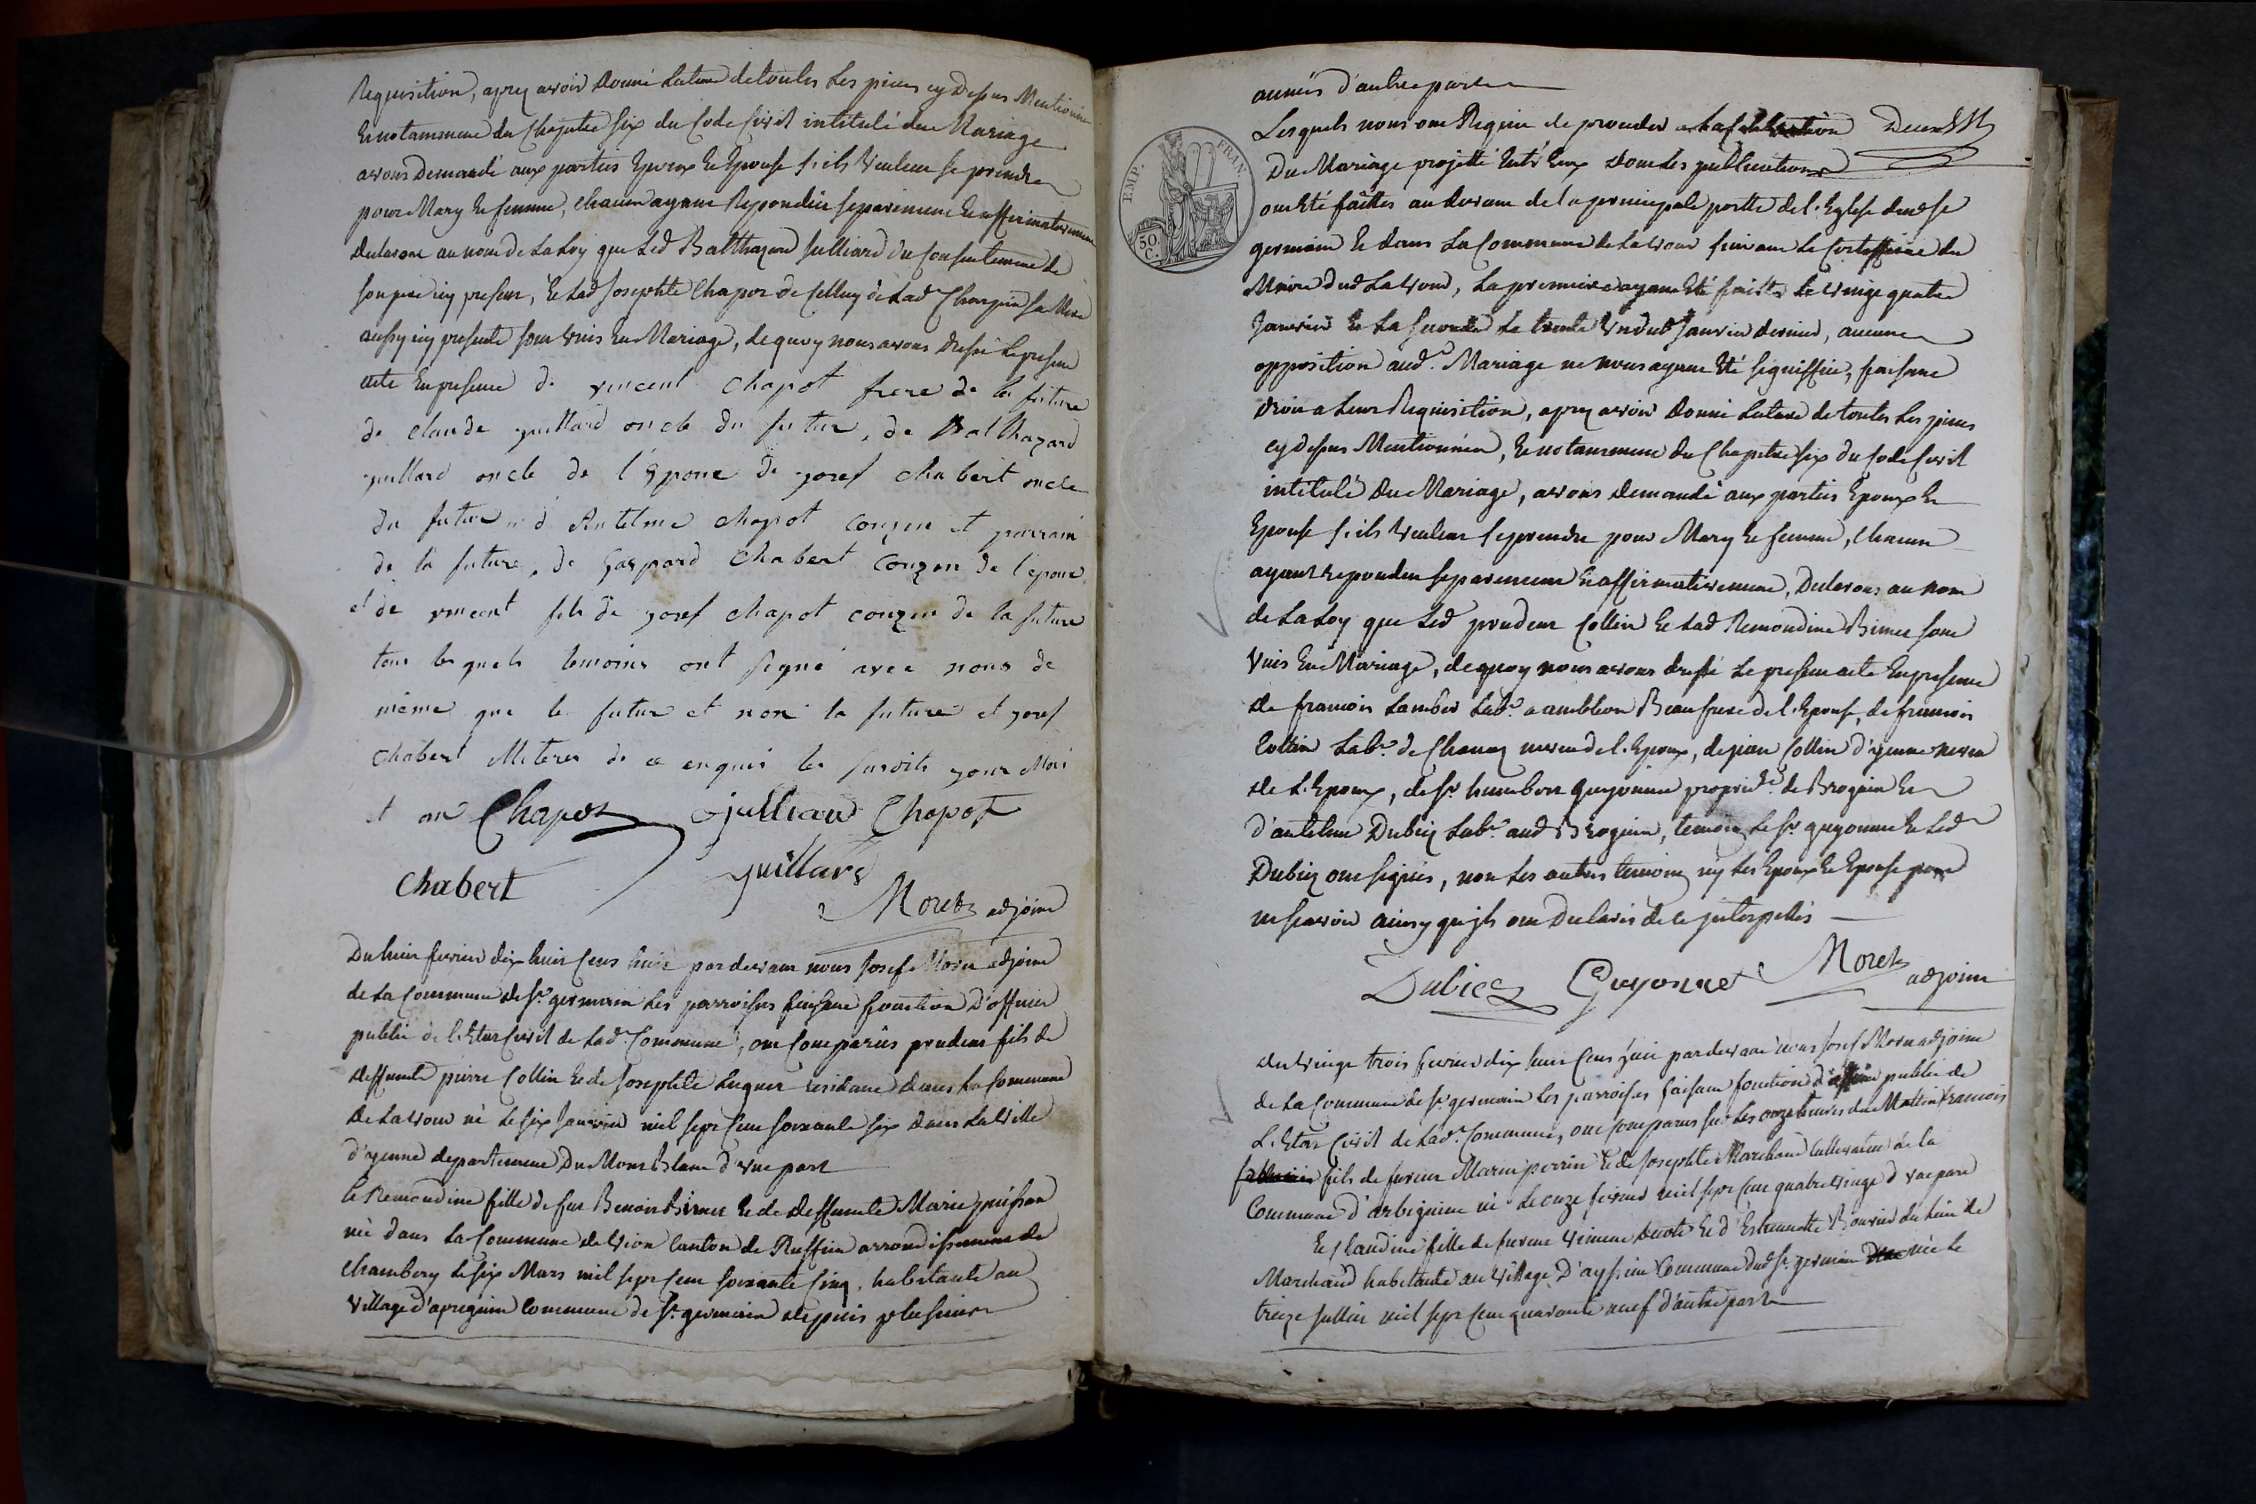 Requisition, aprez avoir donné lecture de toutes les pieces cy dessus Mentionnées
Et notamment du Chapitre six du Code Civil intitulé du Mariage
avons demandé aux parties Epoux Et Epouse s'ils Veulent se prendre
pour Mary Et femme, chacun ayant Repondu separement Et affirmativement
declarons au nom de La Loy que Led Balthazard Julliard du Consentement de
son pere icy present, Et Lad Josephte Chapot de Celluy de Lad Charpin sa Mere
aussy icy presente sont Unis En Mariage, de quoy nous avons dressé Le present
acte En presence de vincent chapot frere de la future
de claude guillard oncle du futur, de Balthazard
guillard oncle de l'Epoux de josef chabert oncle
du futur d'Antelme chapot couzin et parrain
de la future, de Gaspard Chabert couzin de l'epoux
et de vincent fils de josef chapot couzin de la future
tous les quels temoins ont signé avec nous de
même que le futur et non la future et josef
chabert de ce enquis les susdits jour Mois
et an Chapot Julliard Chapot
Chabert guillard
Moret adjoint
Du huit fevrier dix huit Cens huit pardevant nous Josef Moret adjoint
de La Commune de St germain Les parroisses faisant fonction D'officier
public de l'Etat Civil de Lad. Commune, ont Comparus prudent fils de
deffunts pierre Collin Et de Josephte Luquet residant dans La Commune
de Lavour né Le six Janvier mil sept Cent soixante six dans La Ville
d'yenne departement Du Mont blanc d'une part
Et Remondine fille de feu Benoit Rimet Et de deffunte Marie
née dans La Commune de Vion Canton de Ruffieu arrondissement de
Chambery Le six Mars mil sept Cent soixante Cinq, habitante au
Village d'apregnin Commune de St. germain depuis plusieurs
années d'autre part
Lesquels nous ont Requis de proceder a La Celebration
Du Mariage projetté Entr'Eux dont Les publications
ont Eté faittes au devant de la principale portte de l'Eglise dud St
germain Et dans La Commune de Lavour suivant Le Certifficat du
Maire dud Lavour, La premiere ayant Eté faitte Le vingt quatre
Janvier Et La seconde Le trente Un dud Janvier dernier, aucune
opposition aud. Mariage ne nous ayant Eté signiffiée, faisant
droit a Leur Requisition, aprez avoir Donné Lecture de toutes Les pieces
cy dessus Mentionnées, Et notamment du Chapitre six du Code Civil
intitulé Du Mariage, avons demandé aux parties Epoux Et
Epouse s'ils Veulent se prendre pour Mary Et femme, chacun
ayant repondu separement Et affirmativement, Declarons au nom
de La Loy que Led prudent Collin Et Lad Remondine Rimet sont
Unis En Mariage, de quoy nous avons dressé Le present acte En presence
de francois Lambert Labr. a ambleon Beaufrere de l'Epouse, de francois
Collin Labr. de Chanaz neveu de l'Epoux, de jean Collin d'yenne neveu
de L'Epoux, de Sr humbert Guyonnet propriét. de Brognin Et
d'antelme Dubiez Labr. aud Brognin, temoins, Le Sr guyonnet Et Led
Dubiez ont signés, non Les autres temoins ny Les Epoux Et Epouse pour
ne sçavoir ainsy qu'ils ont Declarés de ce interpellés
Dubiez Guyonnet Moret
adjoint
du vingt trois fevrier dix huit Cens huit pardevant nous Josef Moret adjoint
de La Commune de St. germain Les parroisses faisant fonction d'officier public de
L'Etat Civil de Lad. Commune, ont Comparus sur Les onze heures du Mattin francois
fils de feu sieur Marin perrin Et de Josephte Marchand Cultivateur de la
Commune d'arbignieu né Le onze fevrier mil sept Cent quatrevingt d'une part
Et Claudine fille de feu Vincent Et d'Estiennette Bouvier
Marchand habitante au village d'ayssieu Commune dud St. germain née Le
treize Juillet mil sept Cent quarante neuf d'autre part
EMP. FRAN.
50
C.